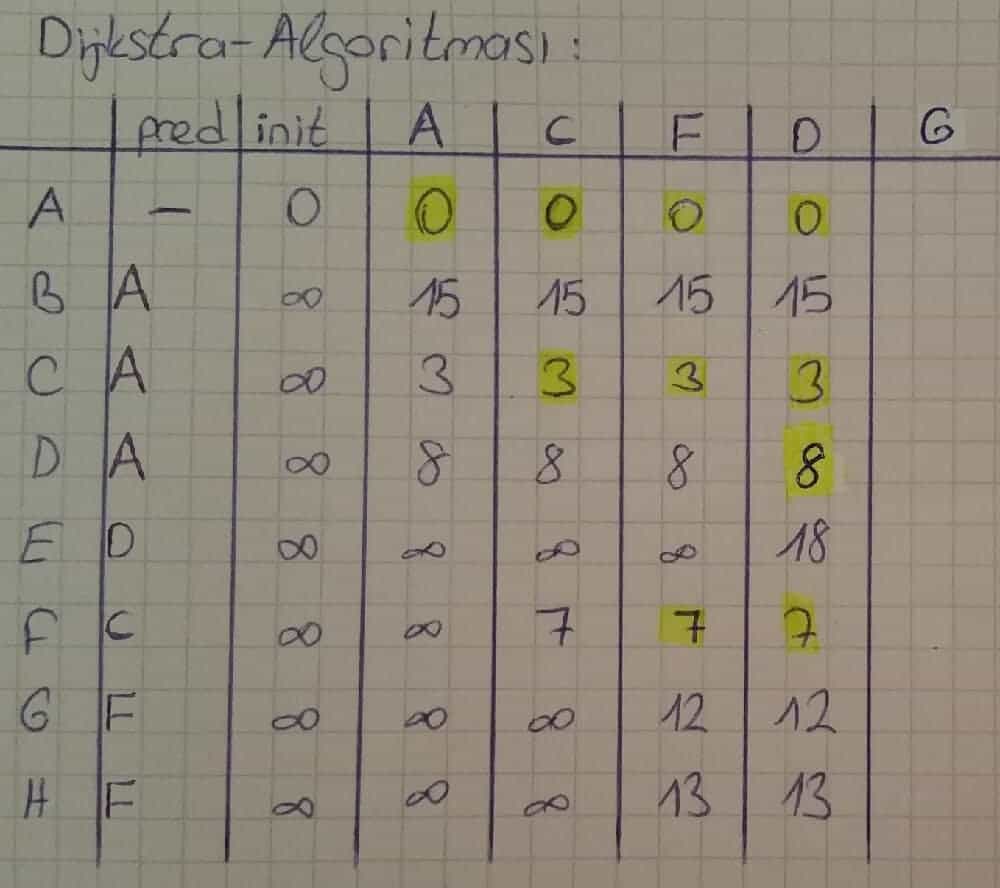 Dijkstra-Algoritması:
pred init A C F D G
A — 0 0 0 0 0
B A ∞ 15 15 15 15
C A ∞ 3 3 3 3
D A ∞ 8 8 8 8
E D ∞ ∞ ∞ ∞ 18
F C ∞ ∞ 7 7 7
G F ∞ ∞ ∞ 12 12
H F ∞ ∞ ∞ 13 13